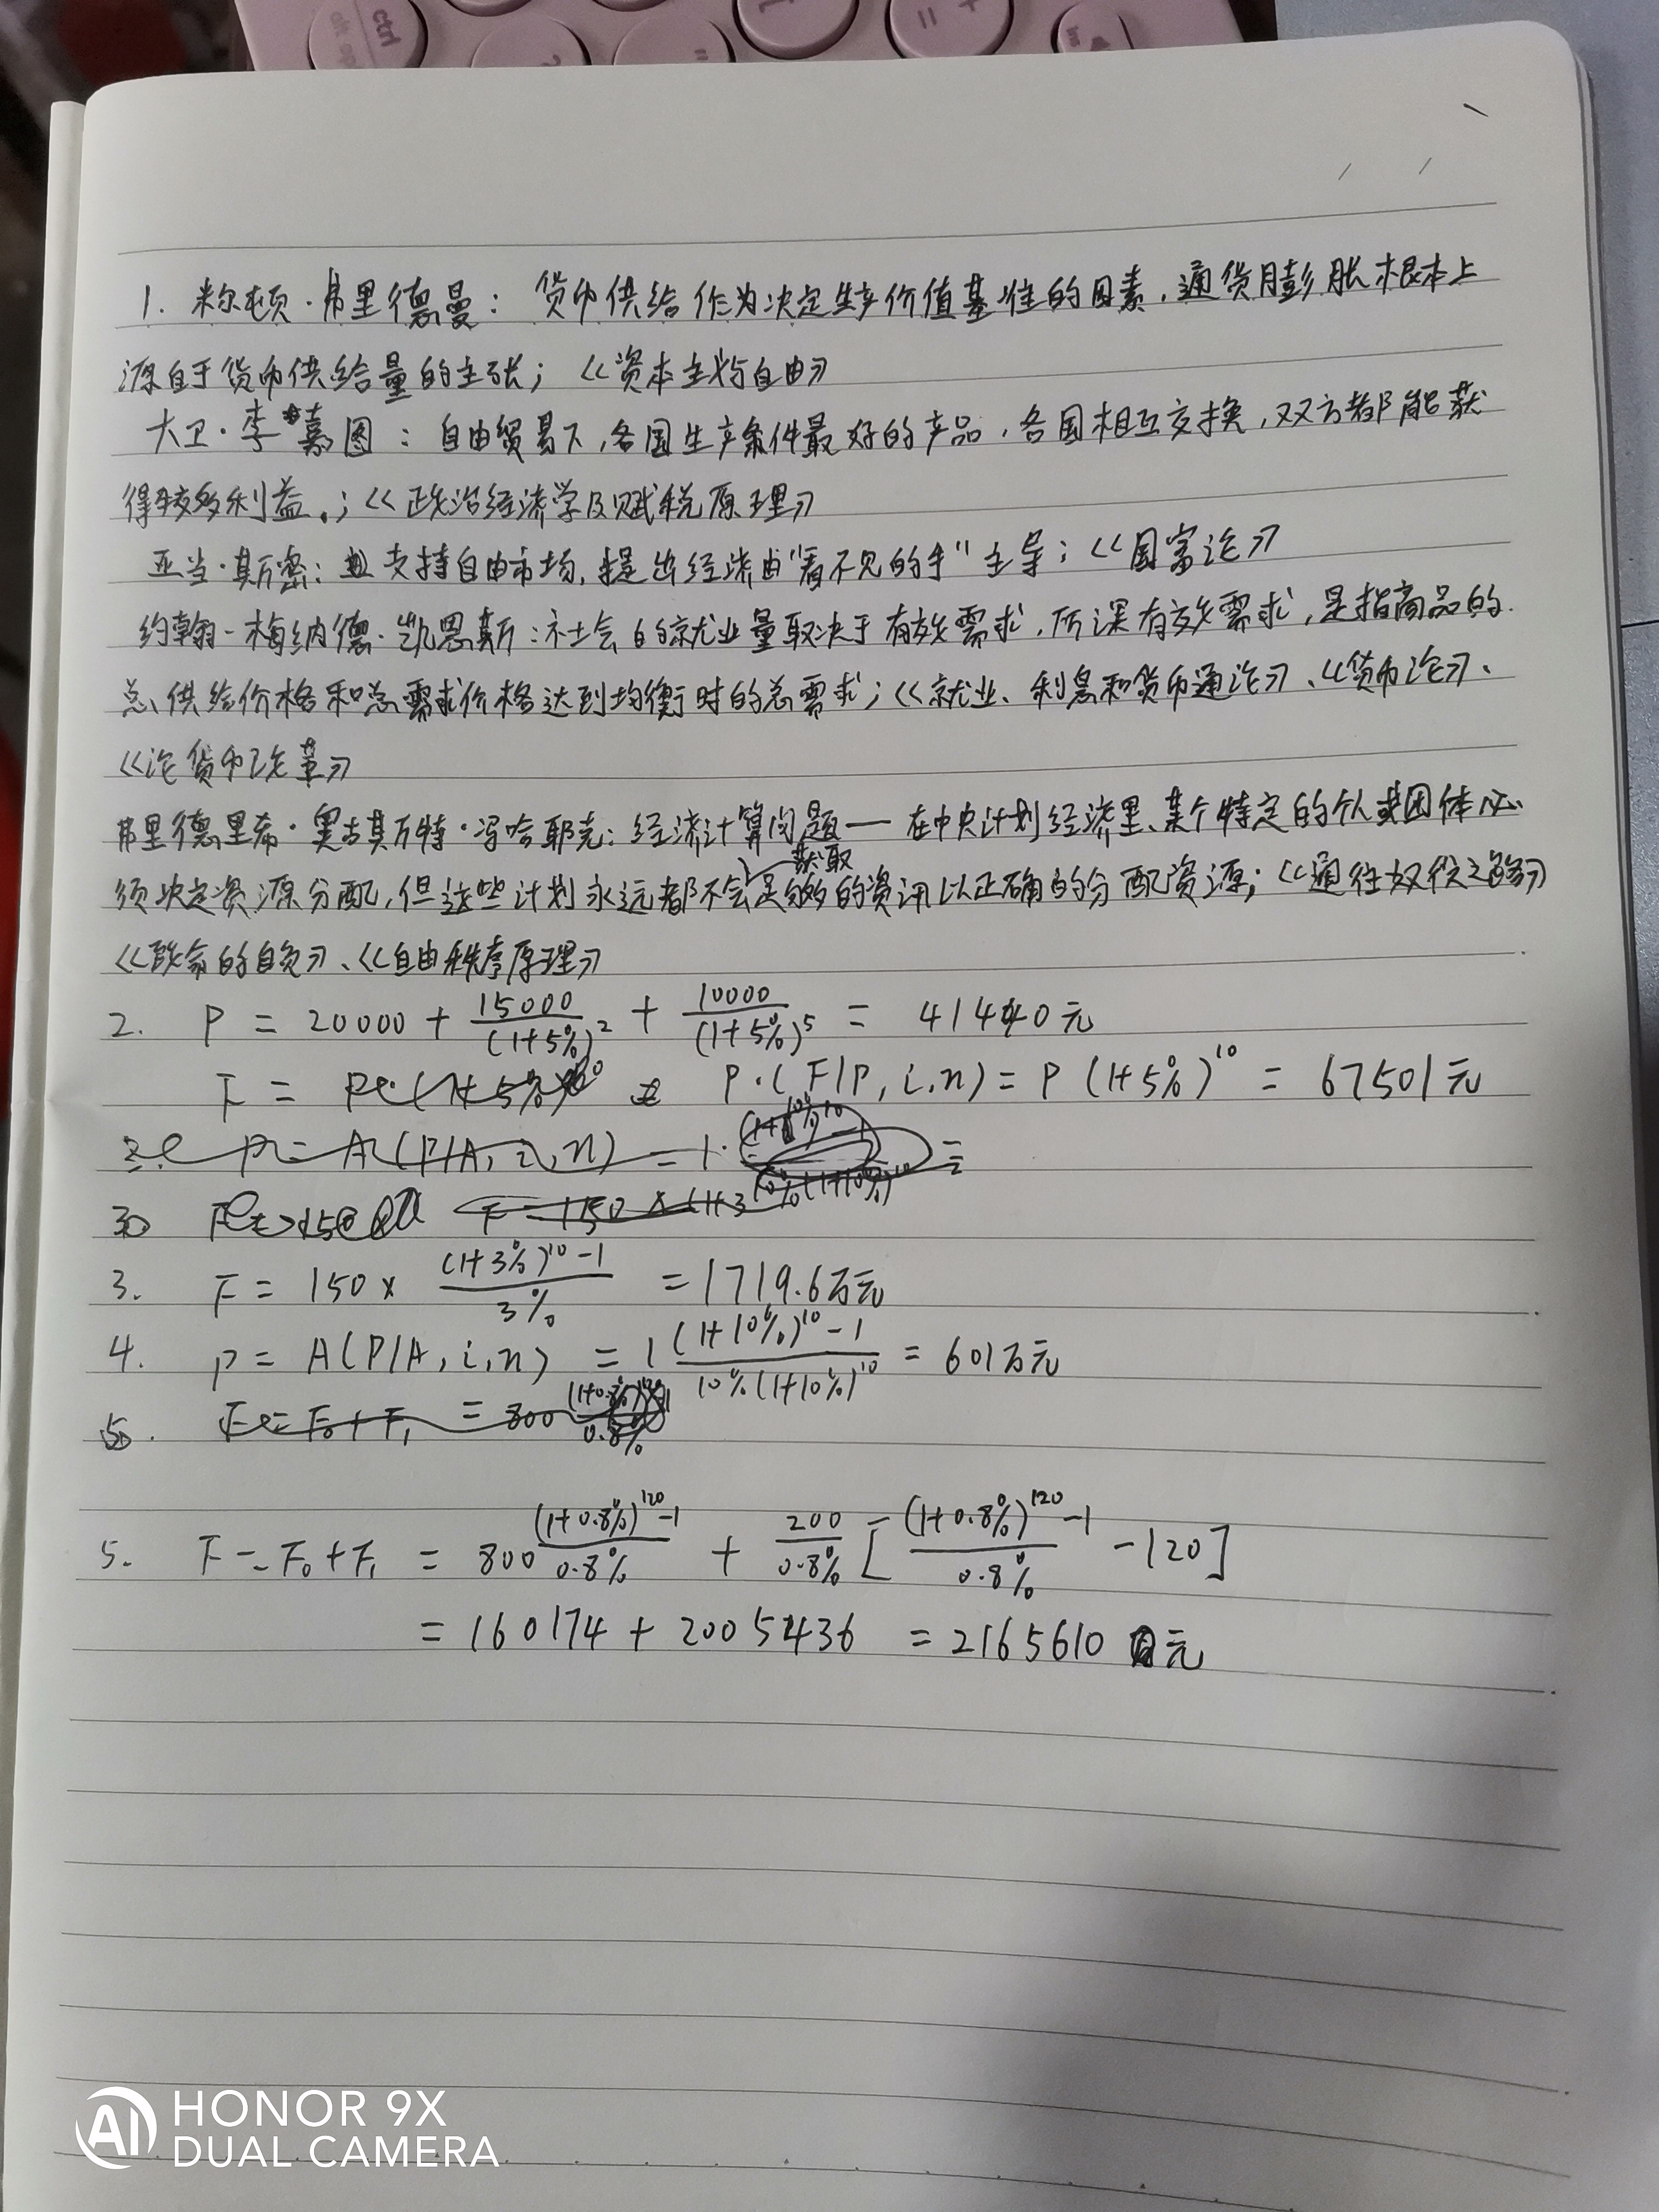 ctrl
1. 米尔顿·弗里德曼: 货币供给作为决定生产价值基准的因素,通货膨胀根本上
源自于货币供给量的主张; 《资本主义与自由》
大卫·李嘉图: 自由贸易下,各国生产条件最好的产品,各国相互交换,双方都能获
得较多利益.;《政治经济学及赋税原理》
亚当·斯密: 支持自由市场,提出经济由"看不见的手"主导;《国富论》
约翰-梅纳德·凯恩斯:社会的就业量取决于有效需求,所谓有效需求,是指商品的
总供给价格和总需求价格达到均衡时的总需求;《就业、利息和货币通论》、《货币论》、
《论货币改革》
弗里德里希·奥古斯特·冯哈耶克: 经济计算问题—在中央计划经济里、某个特定的个人或团体必
须决定资源分配,但这些计划永远都不会获取足够多的资讯以正确的分配资源;《通往奴役之路》
《致命的自负》、《自由秩序原理》
2. P = 20000 + 15000/(1+5%)² + 10000/(1+5%)⁵ = 41440元
F = P·(F/P, i,n) = P(1+5%)¹⁰ = 67501元
P = A(P/A, i, n) = 1·
3. F = 150 × ((1+3%)¹⁰-1)/3% = 1719.6万元
4. P = A(P/A, i,n) = 1 ((1+10%)¹⁰-1)/(10%(1+10%)¹⁰) = 601万元
5. F = F₀ + F₁ = 800
5. F = F₀+F₁ = 800 ((1+0.8%)¹²⁰-1)/0.8% + 200/0.8% [((1+0.8%)¹²⁰-1)/0.8% -120]
= 160174 + 2005436 = 2165610 元
AI HONOR 9X
DUAL CAMERA